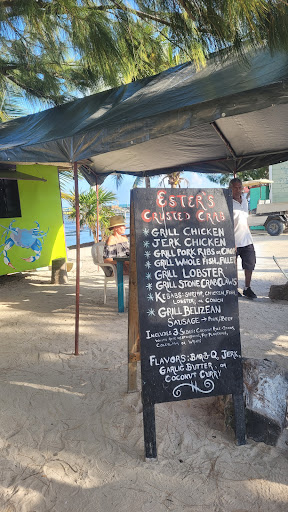 Ester's
Crusted Crab
* Grill Chicken
* Jerk Chicken
* Grill Pork Ribs or Chop
* Grill Whole Fish, Fillet
* Grill Lobster
* Grill Stone Crab Claws
* Kebabs - Shrimp, Chicken, Pork
Lobster or Conch
* Grill Belizean
Sausage → Pork/Beef
Includes 3 Sides: Coconut Rice
Flavors: Bar B Q, Jerk,
Garlic Butter, or
Coconut Curry